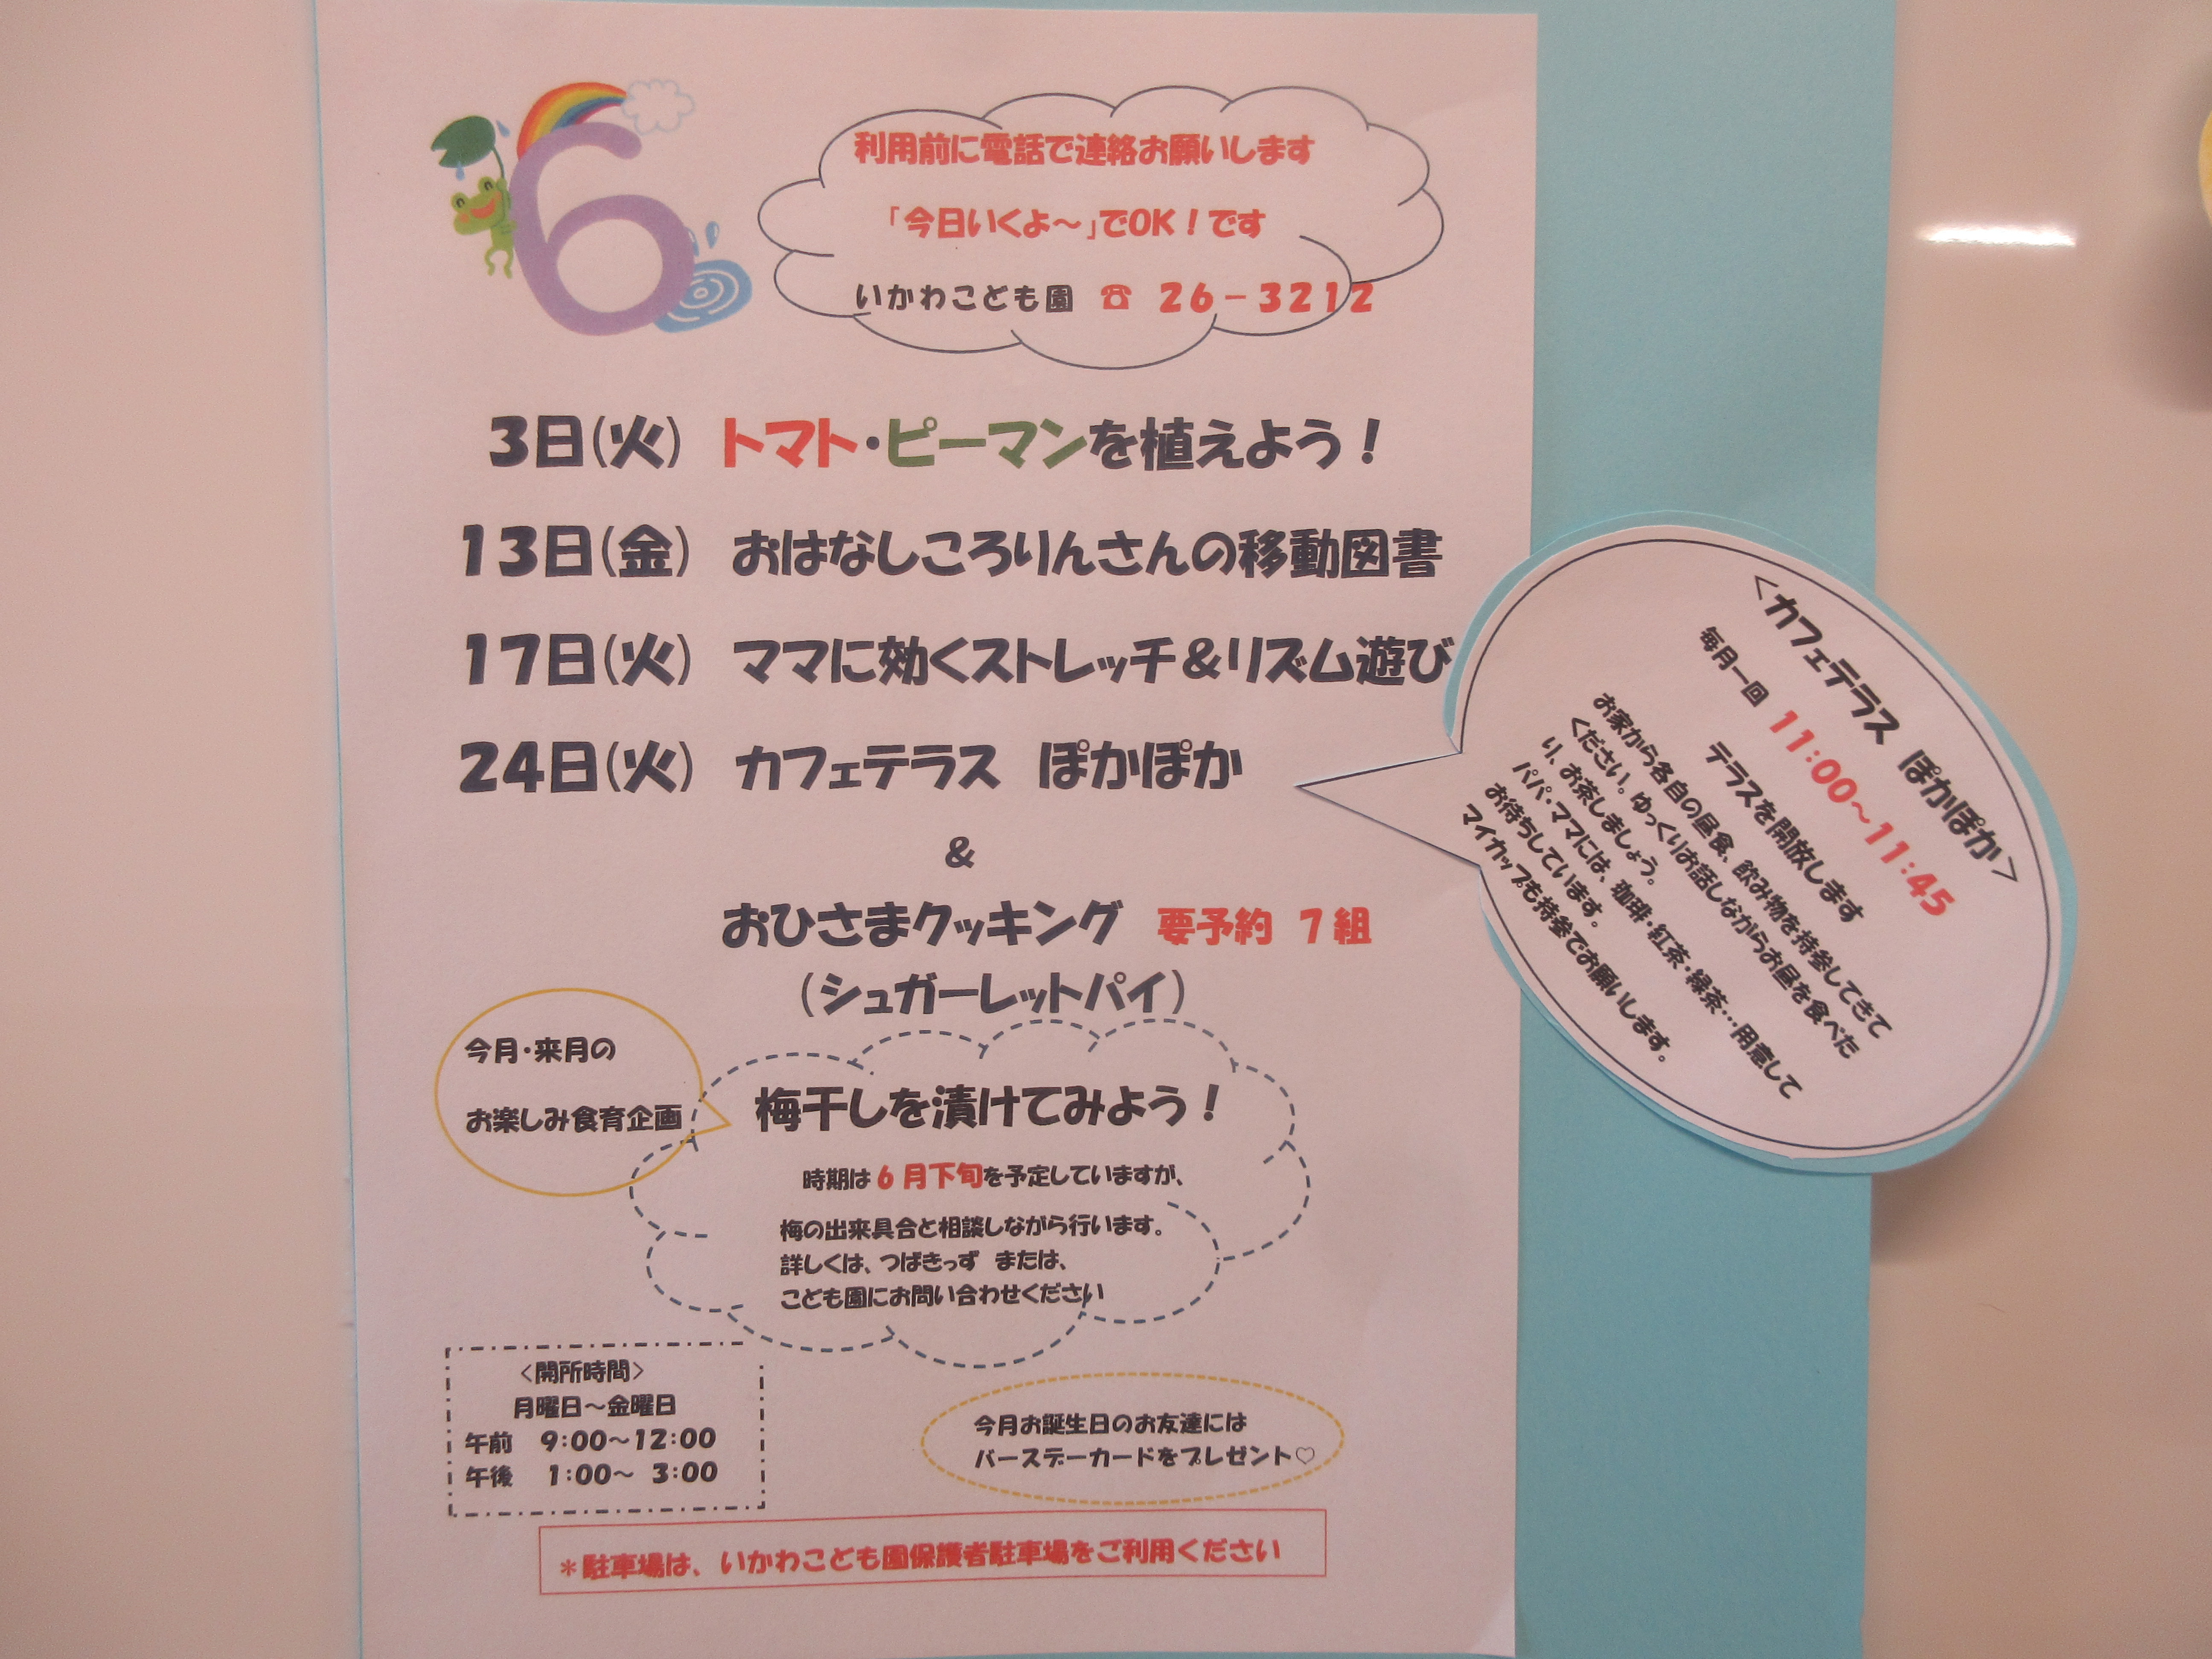 6
利用前に電話で連絡お願いします
「今日いくよ～」でOK！です
いかわこども園 ☎ 26－3212
3日(火) トマト・ピーマンを植えよう！
13日(金) おはなしころりんさんの移動図書
17日(火) ママに効くストレッチ＆リズム遊び
24日(火) カフェテラス ぽかぽか
＆
おひさまクッキング 要予約 7組
（シュガーレットパイ）
＜カフェテラス ぽかぽか＞
毎月一回 11:00～11:45
テラスを開放します
お家から各自の昼食、飲み物を持参してきて
ください。ゆっくりお話しながらお昼を食べた
り、お茶しましょう。
パパ・ママには、珈琲・紅茶・緑茶…用意して
お待ちしています。
マイカップも持参でお願いします。
今月・来月の
お楽しみ食育企画
梅干しを漬けてみよう！
時期は6月下旬を予定していますが、
梅の出来具合と相談しながら行います。
詳しくは、つばきっず または、
こども園にお問い合わせください
＜開所時間＞
月曜日～金曜日
午前 9:00～12:00
午後 1:00～ 3:00
今月お誕生日のお友達には
バースデーカードをプレゼント♡
＊駐車場は、いかわこども園保護者駐車場をご利用ください